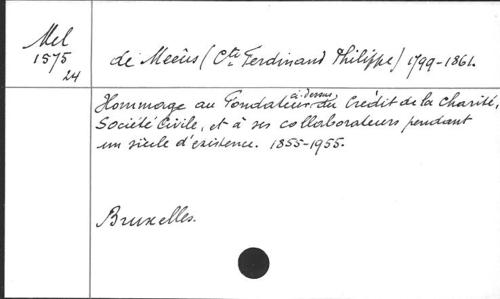 Mel
1575
24
de Meeûs (Cte Ferdinand Philippe) 1799-1861.
Hommage au Fondateur ci-dessus du Crédit de la Charité,
Société Civile, et à ses collaborateurs pendant
un siècle d'existence. 1855-1955.
Bruxelles.